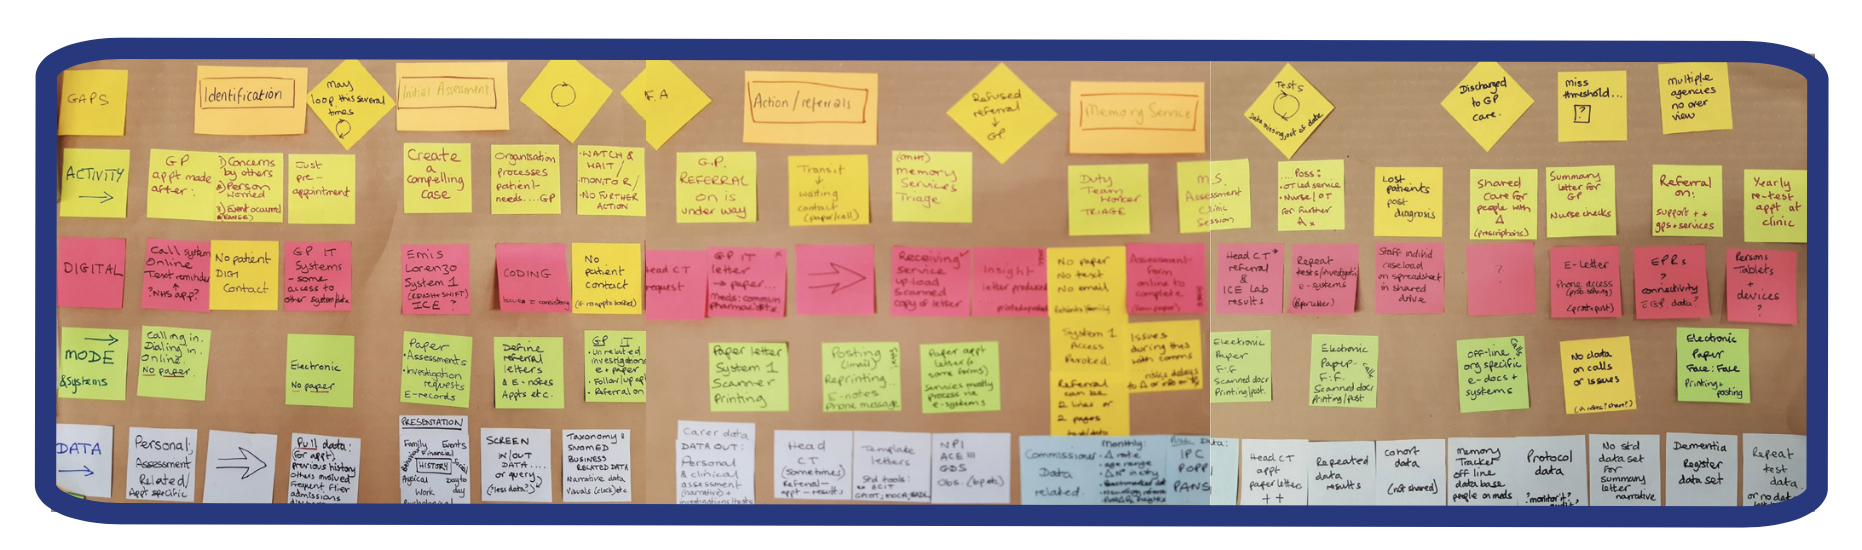 GAPS
Identification
May
loop this several
times
Initial Assessment
F.A
Action/referrals
Refused
referral
GP
Memory Service
Tests
Data missing, out of date
Discharged
to GP
care.
miss
threshold...
?
multiple
agencies
no over
view
ACTIVITY
GP
appt made
after:
1) Concerns
by others
2) Person
worried
3) Event occurred
Just
pre-
appointment
Create
a
compelling
case
Organisation
processes
patient
needs....GP
·WATCH &
WAIT/
·MONITOR/
·NO FURTHER
ACTION
G.P.
REFERRAL
on is
under way
Transit
waiting
contact
(paper/call)
(OMHT)
Memory
Services
Triage
Duty
Team
Worker
TRIAGE
M.S.
Assessment
Clinic
Session
...Poss:
·OT Led service
·Nurse/OT
for further
Ax
Lost
patients
post
diagnosis
Shared
Care for
people with
Δ
(prescriptions)
Summary
letter for
GP
Nurse checks
Referral
on:
support ++
gps+services
Yearly
re-test
appt at
clinic
DIGITAL
Call system
Online
Text reminder
?NHS app?
No patient
DIGI
Contact
GP IT
Systems
-some
access to
other system/data
Emis
Lorenzo
System 1
(REDISH SHIFT)
ICE ?
CODING
issues = consistency
No
patient
contact
(if no appts booked)
Head CT
request
GP IT
letter
→ paper...
Meds: commun
pharmacists.
Receiving
service
upload
scanned
copy of letter
Insight
letter produced
printed+posted
No paper
No text
No email
Patients/family
Assessment
form
online to
complete
Head CT
referral
&
ICE Lab
results
Repeat
tests/investigations
e-systems
(GP letter)
Staff individ
caseload
on spreadsheet
in shared
drive
?
E-Letter
Phone access
(prob. solving)
(print+post)
EPRs
?
connectivity
EGP data?
Persons
Tablets
+
devices
?
MODE
&systems
Calling in.
Dialing in.
Online.
No paper.
Electronic
No paper
Paper
·Assessments
·Investigation
requests
E-records
Define
referral
letters
& E-notes
Appts etc.
GP IT
·Unrelated
investigations
e. paper
·Follow/up appt
·Referral on
Paper letter
System 1
Scanner
Printing
Posting
(1mail)
Reprinting...
E-notes
Phone message
Paper appt
letter &
some forms)
Services mostly
process via
e-systems
System 1
Access
Pivoted.
Referral
can be
2 lines or
2 pages
text/data
Issues
during this
with comms
Electronic
Paper
F:F
Scanned docs
Printing/post.
Electronic
Paper-
F:F.
Scanned docs
Printing/post
Calls
OFF-line
org specific
e-docs +
systems
Calls
No data
on calls
or issues
Electronic
Paper
Face: Face
Printing+
posting
DATA
Personal;
Assessment
Related/
Appt specific
Pull data:
(for appt),
previous history
others involved
Frequent flier
admissions
PRESENTATION
Family Events
HISTORY
Atypical Day to
Work day
SCREEN
IN/OUT
DATA....
or query
(& test data?)
Taxonomy &
SNOMED
BUSINESS
RELATED DATA
Narrative data
Visuals (clock) etc
Carer data
DATA OUT:
Personal
& clinical
assessment
(narrative) +
investigations/tests
Head
CT
(sometimes)
Referral-
appt-results
Template
letters
Std tools:
NPI
ACE III
GDS
Obs. (bp etc)
Commissioner
Data
related.
Monthly:
·Δ rate
·age range
·Δ N° in city
Public Data:
IPC
POPPI
PANSI
Head CT
appt
paper letter
++
Repeated
data
results
cohort
data
(not shared)
Memory
Tracker
off line
data base
people on meds
Protocol
data
?monitor it?,
audit
No std
data set
for
summary
letter
narrative
Dementia
Register
data set
Repeat
test
data.
or no data